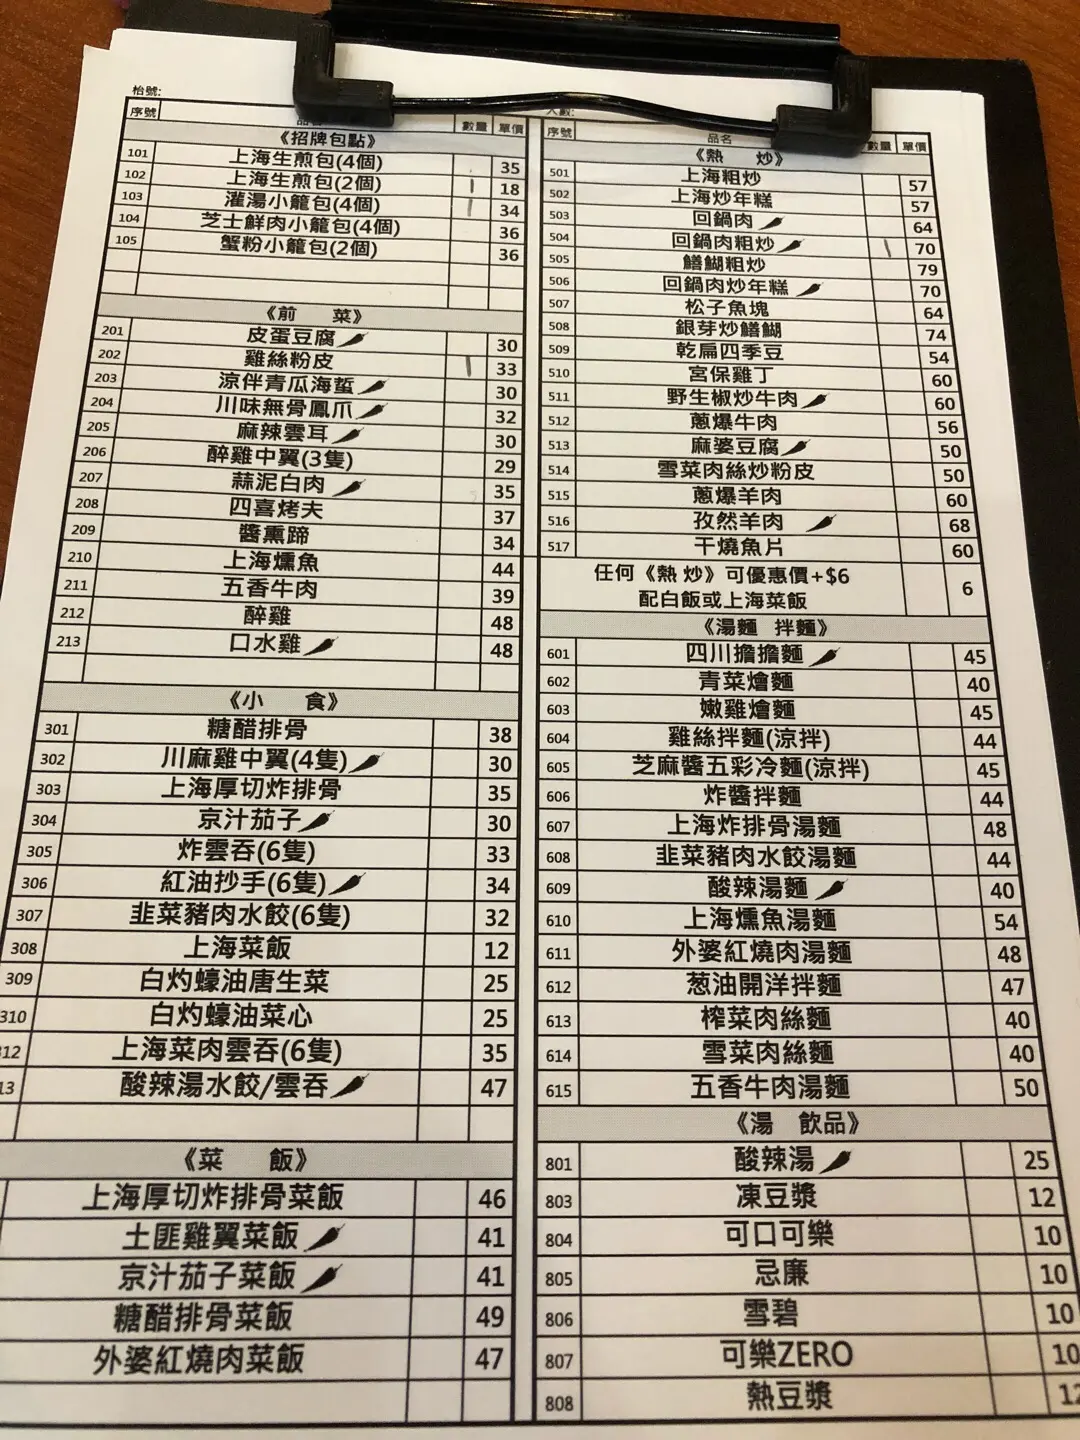 枱號:
序號 品名 數量 單價
《招牌包點》
101 上海生煎包(4個) 35
102 上海生煎包(2個) 18
103 灌湯小籠包(4個) 34
104 芝士鮮肉小籠包(4個) 36
105 蟹粉小籠包(2個) 36
《前 菜》
201 皮蛋豆腐 30
202 雞絲粉皮 33
203 涼伴青瓜海蜇 30
204 川味無骨鳳爪 32
205 麻辣雲耳 30
206 醉雞中翼(3隻) 29
207 蒜泥白肉 35
208 四喜烤夫 37
209 醬熏蹄 34
210 上海燻魚 44
211 五香牛肉 39
212 醉雞 48
213 口水雞 48
《小 食》
301 糖醋排骨 38
302 川麻雞中翼(4隻) 30
303 上海厚切炸排骨 35
304 京汁茄子 30
305 炸雲吞(6隻) 33
306 紅油抄手(6隻) 34
307 韭菜豬肉水餃(6隻) 32
308 上海菜飯 12
309 白灼蠔油唐生菜 25
310 白灼蠔油菜心 25
312 上海菜肉雲吞(6隻) 35
13 酸辣湯水餃/雲吞 47
《菜 飯》
上海厚切炸排骨菜飯 46
土匪雞翼菜飯 41
京汁茄子菜飯 41
糖醋排骨菜飯 49
外婆紅燒肉菜飯 47
人數:
序號 品名 數量 單價
《熱 炒》
501 上海粗炒 57
502 上海炒年糕 57
503 回鍋肉 64
504 回鍋肉粗炒 70
505 鱔糊粗炒 79
506 回鍋肉炒年糕 70
507 松子魚塊 64
508 銀芽炒鱔糊 74
509 乾扁四季豆 54
510 宮保雞丁 60
511 野生椒炒牛肉 60
512 蔥爆牛肉 56
513 麻婆豆腐 50
514 雪菜肉絲炒粉皮 50
515 蔥爆羊肉 60
516 孜然羊肉 68
517 干燒魚片 60
任何《熱 炒》可優惠價+$6 6
配白飯或上海菜飯
《湯麵 拌麵》
601 四川擔擔麵 45
602 青菜燴麵 40
603 嫩雞燴麵 45
604 雞絲拌麵(涼拌) 44
605 芝麻醬五彩冷麵(涼拌) 45
606 炸醬拌麵 44
607 上海炸排骨湯麵 48
608 韭菜豬肉水餃湯麵 44
609 酸辣湯麵 40
610 上海燻魚湯麵 54
611 外婆紅燒肉湯麵 48
612 葱油開洋拌麵 47
613 榨菜肉絲麵 40
614 雪菜肉絲麵 40
615 五香牛肉湯麵 50
《湯 飲品》
801 酸辣湯 25
803 凍豆漿 12
804 可口可樂 10
805 忌廉 10
806 雪碧 10
807 可樂ZERO 10
808 熱豆漿 12